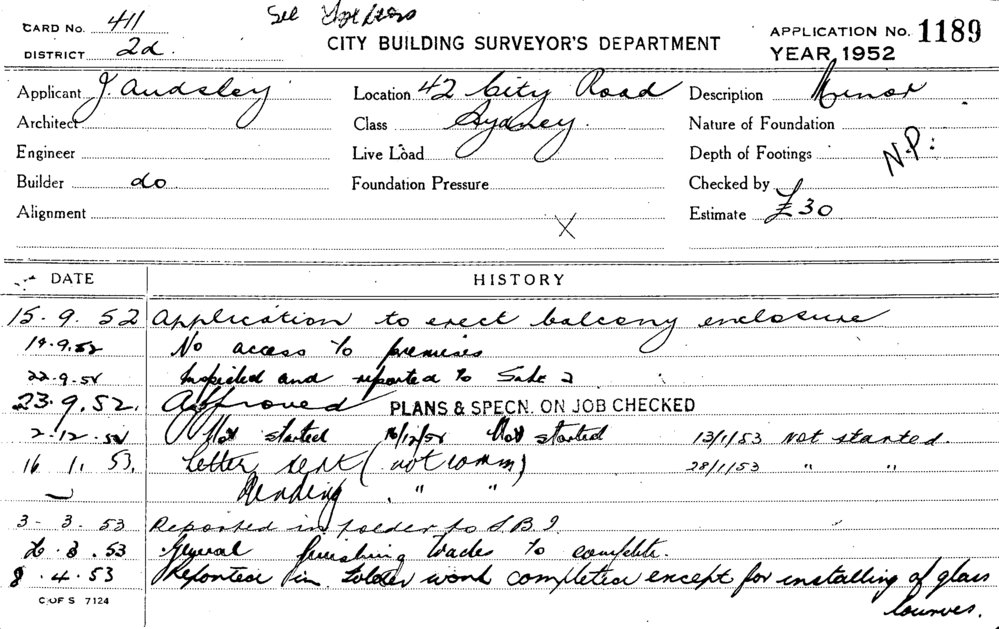 CARD No. 411 See
DISTRICT 2d.
CITY BUILDING SURVEYOR'S DEPARTMENT
APPLICATION No. 1189
YEAR 1952
Applicant J. Audsley Location 42 City Road Description Minor
Architect Class Sydney. Nature of Foundation
Engineer Live Load Depth of Footings N.P.
Builder do Foundation Pressure Checked by
Alignment X Estimate £30
DATE HISTORY
15.9.52 Application to erect balcony enclosure
19.9.52 No access to premises
22.9.52 Inspected and reported to
23.9.52. Approved PLANS & SPECN. ON JOB CHECKED
2.12.52 Not started 16/12/52 Not started 13/1/53 Not started.
16 1. 53. Letter sent (not comm) 28/1/53 " "
Pending . " "
3-3.53 Reported in folder to S.B.I.
26.3.53 General finishing trades to complete.
8.4.53 Reported in folder work completed except for installing of glass
louvres.
C OF S 7124